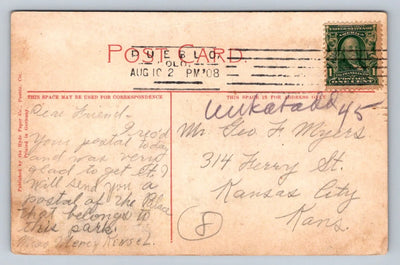 POST CARD
PUEBLO
COLO.
AUG 10 2 PM '08
THIS SPACE MAY BE USED FOR CORRESPONDENCE
THIS SPACE IS FOR THE ADDRESS ONLY
Published by the Hyde Paper Co., Pueblo, Col.
Printed in Germany
Dear Friend-
I rec'd
Your postal today
and was very
glad to get it. I
will send you a
postal of the Palace
that belongs to
this park.
Miss
45
Mr. Geo F Myers
314 Ferry St.
Kansas City
Kans.
8